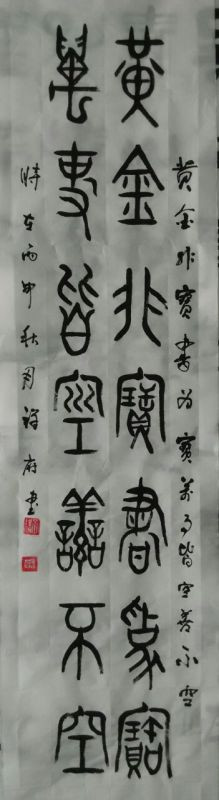 黄金非寶書為寶萬事皆空善不空
黄金非寶書爲寶
萬事皆空善不空
時在丙申秋月書